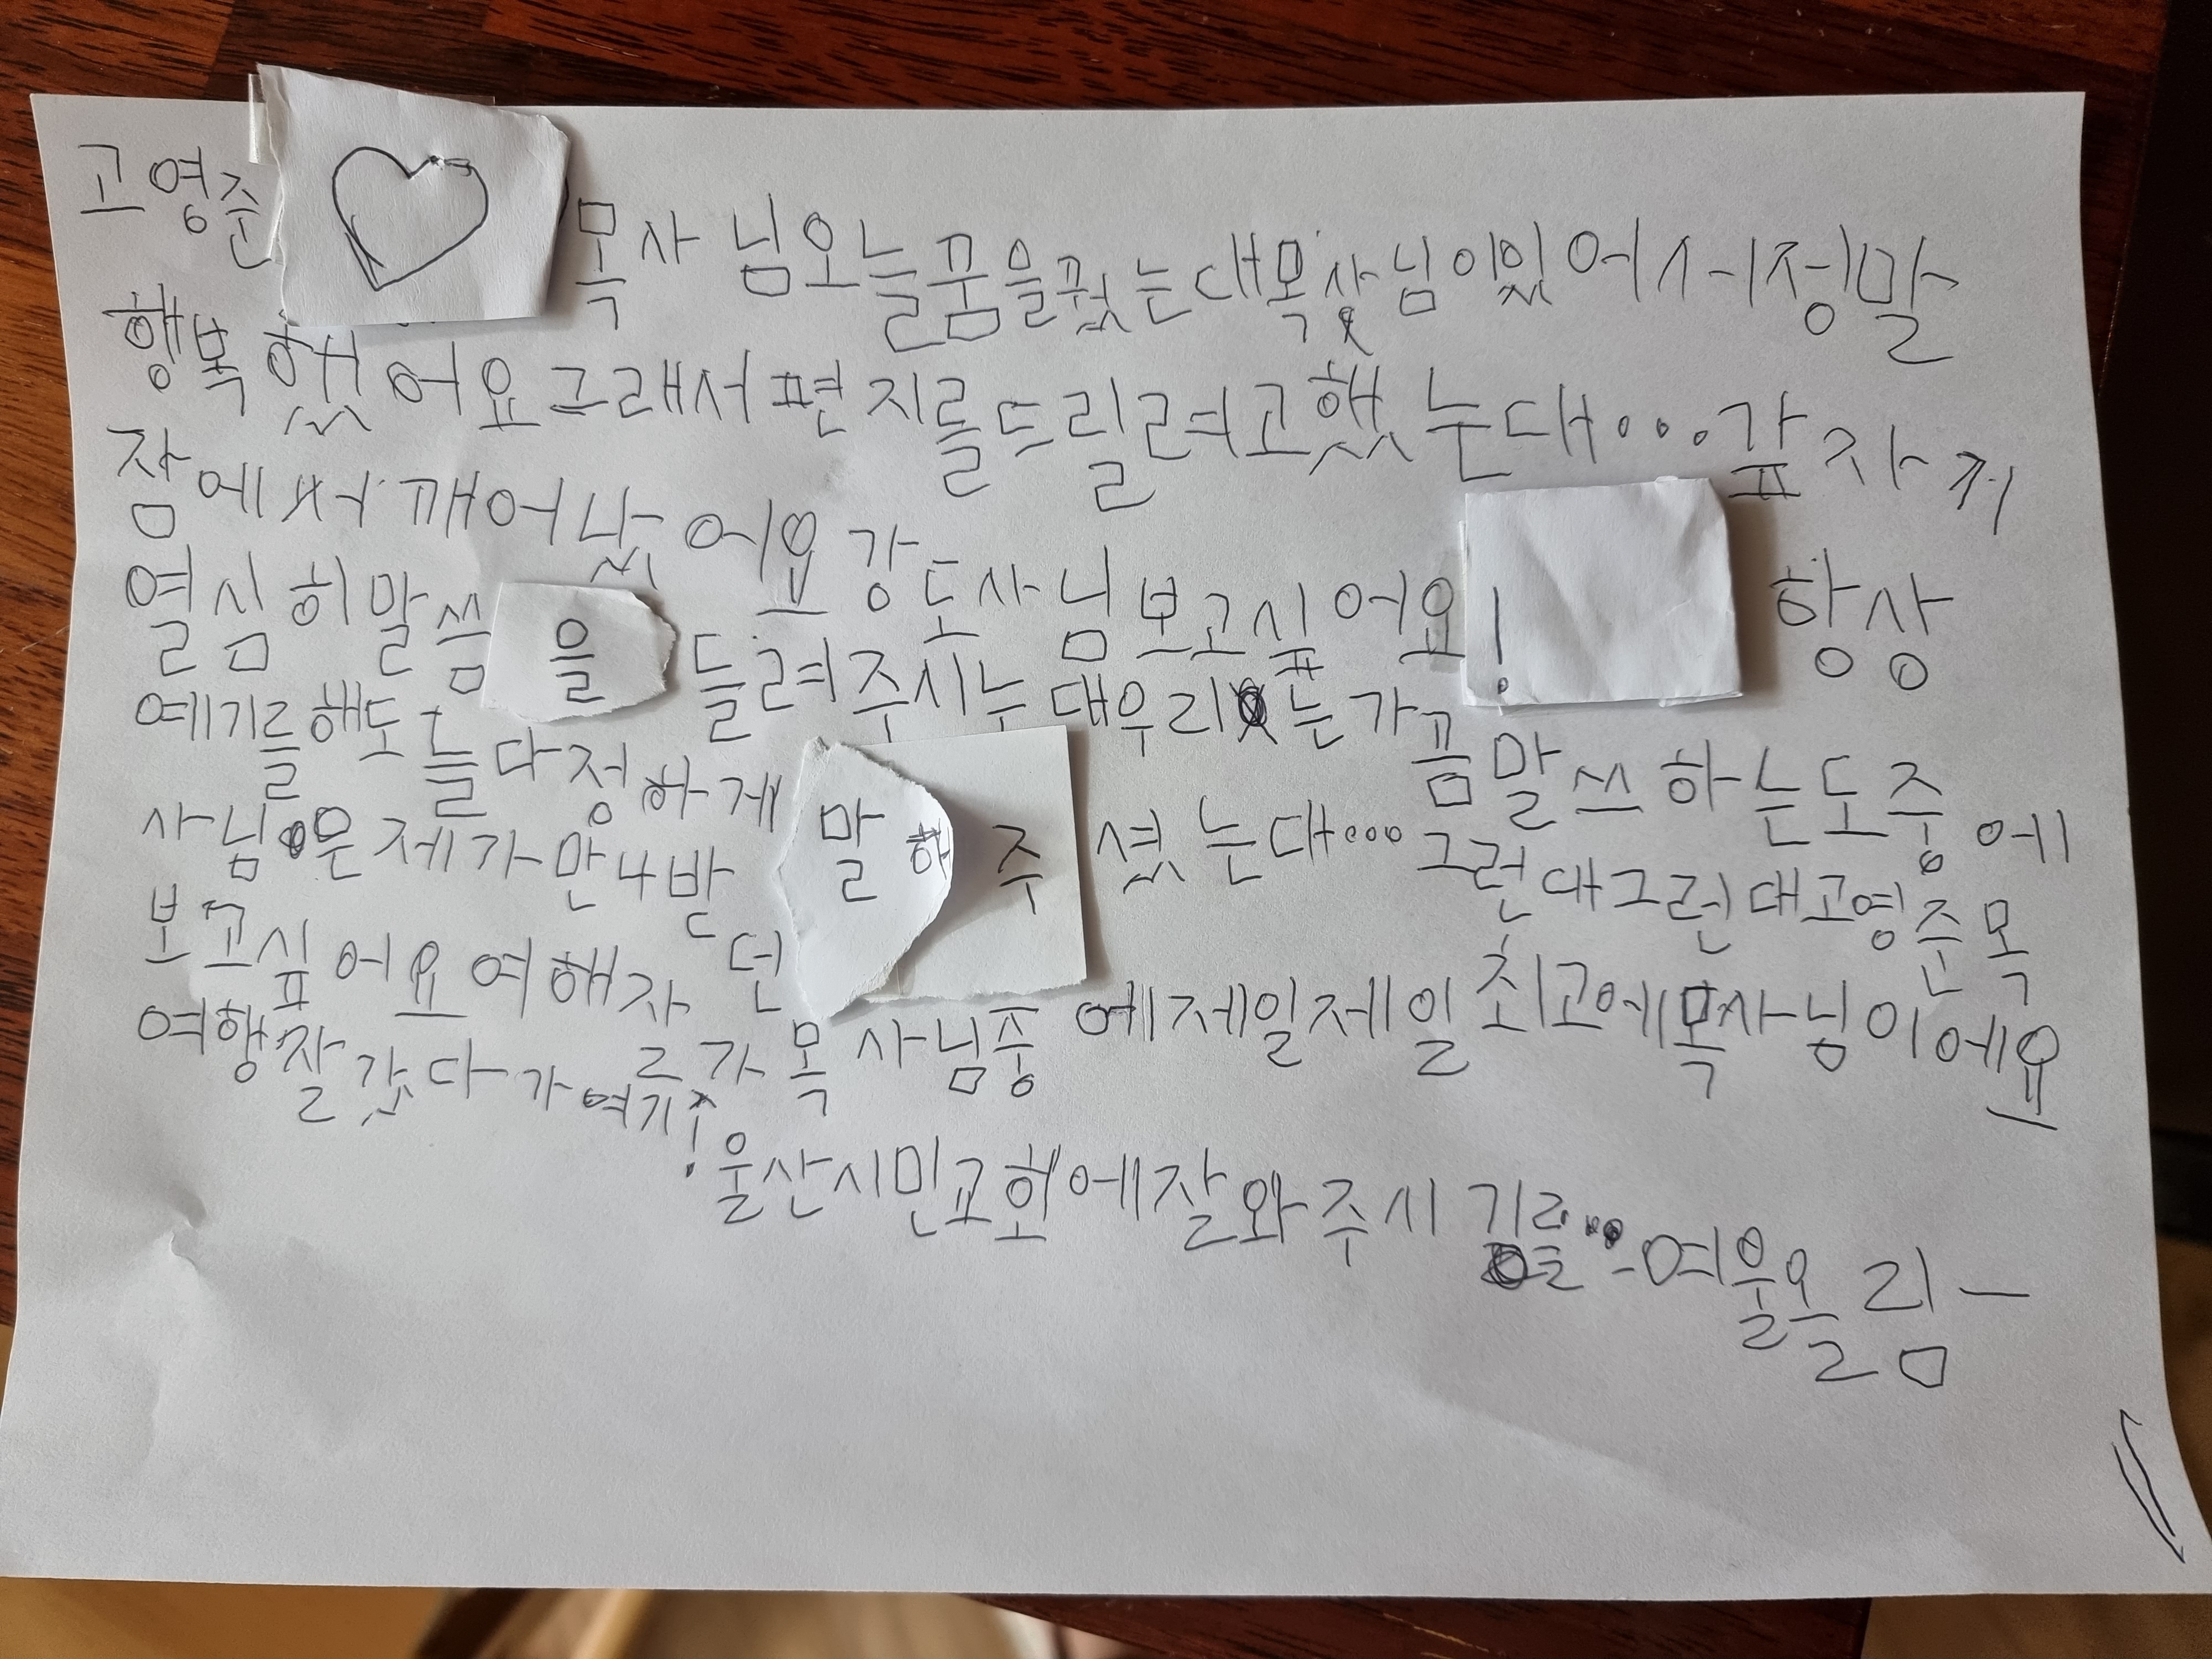 고영준 ♡ 목사님오늘꿈을꿨는대목사님이있어서정말
행복했어요그래서편지를드릴려고했는대...갚자기
잠에서깨어났어요강도사님보고싶어요! 항상
열심히말씀을들려주시는대우리는가끔말쓰하는도중에
예기를해도늘다정하게말해주셨는대...그런대그런대고영준목
사님은제가만나받던목사님중에제일제일최고에목사님이에요
보고싶어요여해자르가
여행잘갔다가여기!울산시민교회에잘와주시기를...-여울올림-